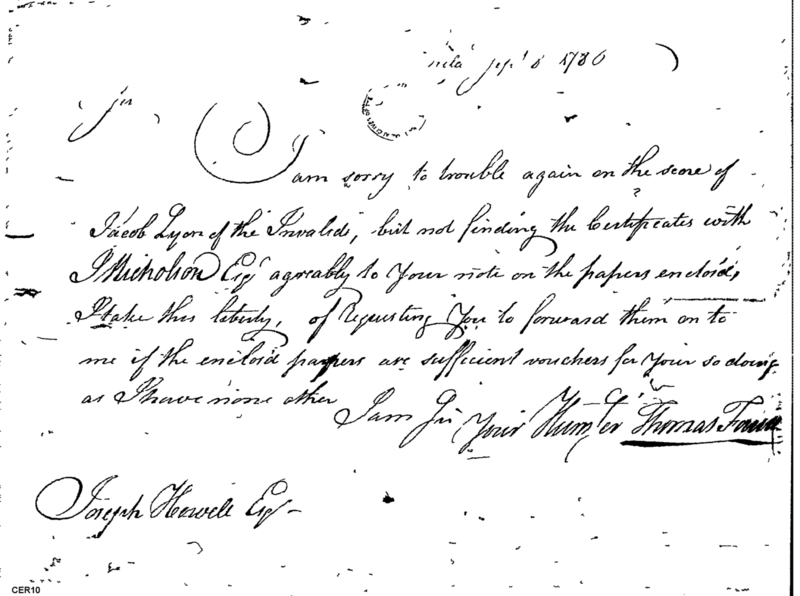 Sep' 8 1786
Sir
I am sorry to trouble again on the score of
Jacob Lyon of the Invalids, but not finding the Certificates with
J Nicholson Esq' agreably to Your note on the papers enclosd,
I take this liberty, of Requesting You to forward them on to
me if the enclosd papers are sufficient vouchers for Your so doing
as I have none other
I am Sir Your Hum Ser Thomas
Joseph Howell Esq
CER10